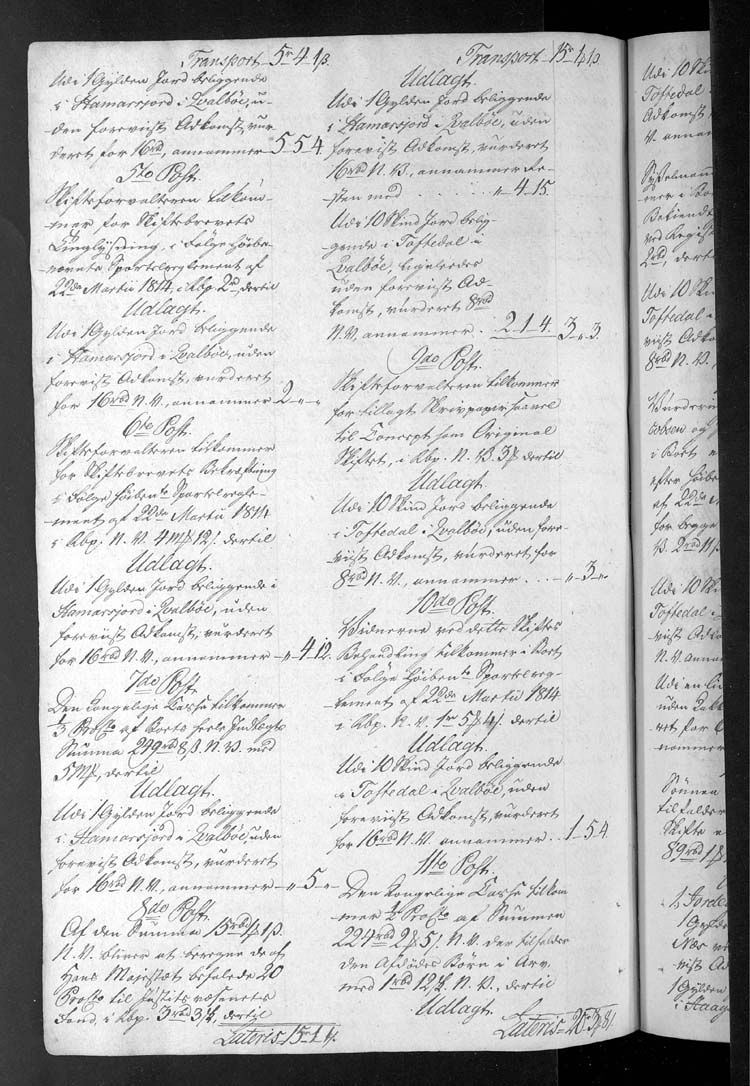 Transport 5 4 1 p.
Udi 1 Gylden Jord beliggende
i Hamarsfjord i Qvalböe, u-
den foreviist Adkomst, vur-
deret for 16 rbd, annammer 5 5 4.
5te Post.
Skifteforvalteren tilkom-
mer for Skiftebrevets
Tinglysning, i Fölge Höibe-
nevnte Sportelreglement af
22de Martii 1814, i Rbp. 2 , dertil
Udlagt.
Udi 1 Gylden Jord beliggende
i Hamarsfjord i Qvalböe, uden
foreviist Adkomst, vurderet
for 16 rbd N. V., annammer 2 " "
6te Post.
Skifteforvalteren tilkommer
for Skiftebrevets Bekræftning
i Fölge Höibente Sportelregle-
ment af 22de Martii 1814
i Rbp. N. V. 4 mk 12 s. dertil
Udlagt.
Udi 1 Gylden Jord beliggende i
Hamarsfjord i Qvalböe, uden
foreviist Adkomst, vurderet
for 16 rbd N. V., annammer " 4 12.
7de Post.
Den Kongelige Casse tilkommer
1/3 Procto af Boets heele Indtægts
Summa 249 rbd 8 s. N. V. med
5 mk, dertil
Udlagt.
Udi 1 Gylden Jord beliggende
i Hamarsfjord i Qvalböe, uden
foreviist Adkomst, vurderet
for 16 rbd N. V., annammer " 5 "
8de Post.
Af den Summa 15 rbd 1 p.
N. V. bliver at beregne de af
Hans Majestæt befalede 20
Procto til Justitsvæsenets
Fond, i Rbp. 3 rbd 3 s, dertil
Lateris 15 1 1.
Transport 15 1 1 p
Udlagt.
Udi 1 Gylden Jord beliggende
i Hamarsfjord i Qvalböe, uden
foreviist Adkomst, vurderet
16 rbd N. V., annammer Re-
sten med " 4 15.
Udi 10 Skind Jord belig-
gende i Toftedal i
Qvalböe, ligeledes
uden foreviist Ad-
komst, vurderet 8 rbd
N. V., annammer 2 1 4. 3 " 3.
9de Post.
Skifteforvalteren tilkommer
for tillagt Skrivpapir saavel
til Concept som Original
Skiftet, i Rbp. N. V. 3 mk dertil
Udlagt.
Udi 10 Skind Jord beliggende
i Toftedal i Qvalböe, uden fore-
viist Adkomst, vurderet for
8 rbd N. V., annammer " 3 "
10de Post.
Vidnerne ved dette Skiftes
Behandling tilkommer i Kost
i Fölge Höibente Sportelreg-
lement af 22de Martii 1814
i Rbp. N. V. 1 5 mk 4 s. dertil
Udlagt.
Udi 10 Skind Jord beliggende
i Toftedal i Qvalböe, uden
foreviist Adkomst, vurderet
for 16 rbd N. V., annammer 1 5 4.
11te Post.
Den Kongelige Casse tilkom
mer 1/2 Procto af Summen
224 rbd 2 mk 5 s. N. V. der tilfalder
den Afdödes Börn i Arv,
med 1 rbd 12 s. N. V., dertil
Udlagt.
Lateris 20 3 8 s.
Udi 10 Ski
Toftedal
Adkomst
V. annam
Sysselmand
mer i Bo
ved Regis
2 rbd, dert
Udi 10 Ski
Toftedal i
viist Adko
8 rbd N. V.
Vurderin
cobsen og
i Kost
efter Höibe
af 22de M
for begge
V. 2 rbd
Udi 10 Ski
Toftedal
viist Adko
N. V. annam
Udi en li
uden
ret for
nammer
Sönnen
tilfalder
Skifte
89 rbd 1
1 Gylde
viist Ad
1 Gylden
i Haag